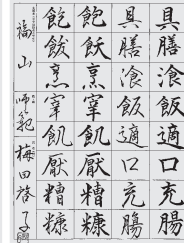 具膳飡飯適口充腸
具膳飡飯適口充腸
飽飫烹宰飢厭糟糠
飽飫烹宰飢厭糟糠
福山 師範 梅田啓子